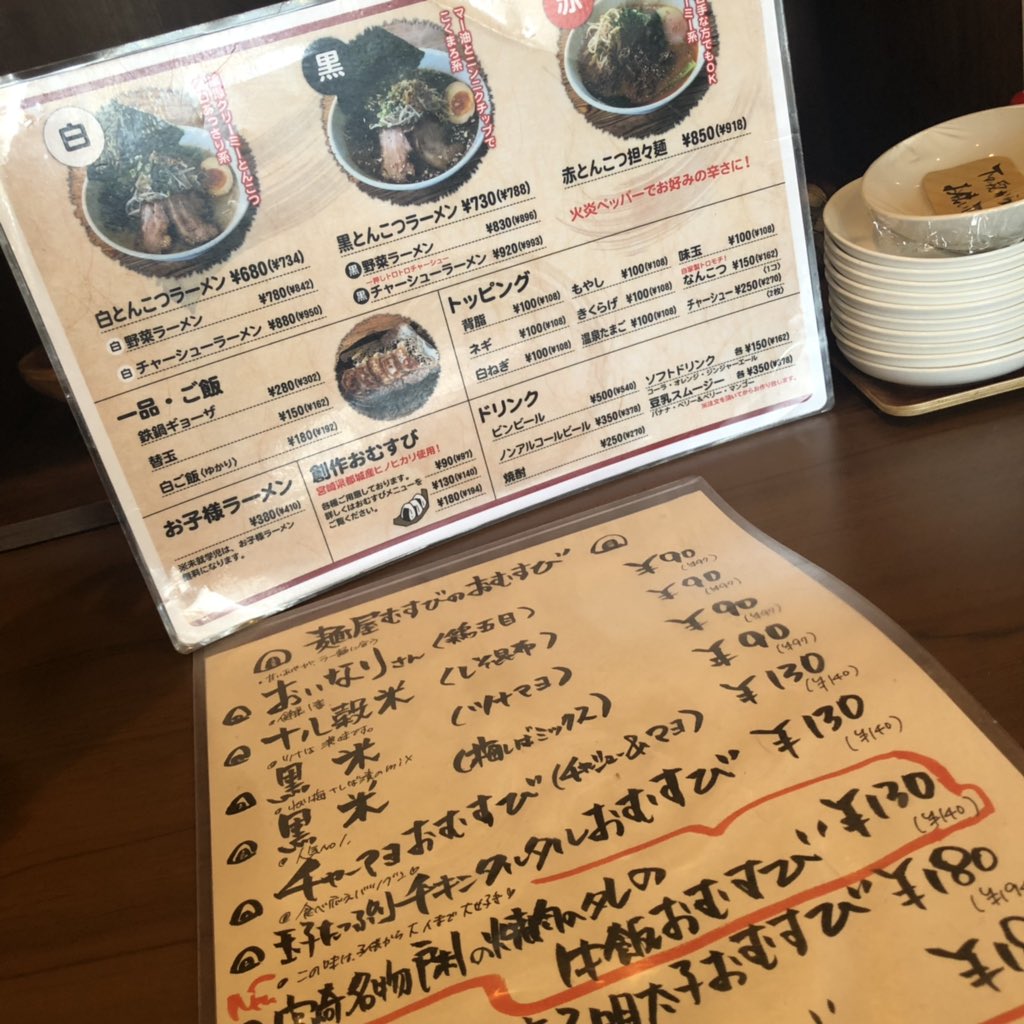 白
黒
赤
マー油とニンニクチップで
こくまろ系
白とんこつラーメン ¥680(¥734)
白 野菜ラーメン ¥780(¥842)
白 チャーシューラーメン ¥880(¥950)
黒とんこつラーメン ¥730(¥788)
黒 野菜ラーメン ¥830(¥896)
一押しトロトロチャーシュー
黒 チャーシューラーメン ¥920(¥993)
赤とんこつ担々麺 ¥850(¥918)
火炎ペッパーでお好みの辛さに!
一品・ご飯
鉄鍋ギョーザ ¥280(¥302)
替玉 ¥150(¥162)
白ご飯(ゆかり) ¥180(¥192)
お子様ラーメン
¥380(¥410)
※未就学児は、お子様ラーメン
無料になります。
創作おむすび
宮崎県都城産ヒノヒカリ使用!
各種ご用意しております。
詳しくはおむすびメニューを
ご覧ください。
¥90(¥97)
¥130(¥140)
¥180(¥194)
トッピング
背脂 ¥100(¥108)
ネギ ¥100(¥108)
白ねぎ ¥100(¥108)
もやし ¥100(¥108)
きくらげ ¥100(¥108)
温泉たまご ¥100(¥108)
味玉 ¥100(¥108)
自家製トロモチ!
なんこつ ¥150(¥162)
(1コ)
チャーシュー ¥250(¥270)
(2枚)
ドリンク
ビンビール ¥500(¥540)
ノンアルコールビール ¥350(¥378)
焼酎 ¥250(¥270)
ソフトドリンク 各¥150(¥162)
コーラ・オレンジ・ジンジャーエール
豆乳スムージー 各¥350(¥378)
バナナ・ベリー&ベリー・マンゴー
※注文を頂いてからお作り致します。
麺屋むすびのおむすび
おいなりさん (鶏五目) ¥90 (¥97)
十八穀米 (しそ昆布) ¥90 (¥97)
黒米 (ツナマヨ) ¥90 (¥97)
黒米 (梅しばミックス) ¥90 (¥97)
チャーマヨおむすび (チャーシュー&マヨ) ¥130 (¥140)
玉子たっぷりチキンタルタルおむすび ¥130 (¥140)
この味は、子供から大人まで大好き
New
宮崎名物戸村の焼肉のタレの
牛飯おむすび ¥130 (¥140)
明太子おむすび ¥180